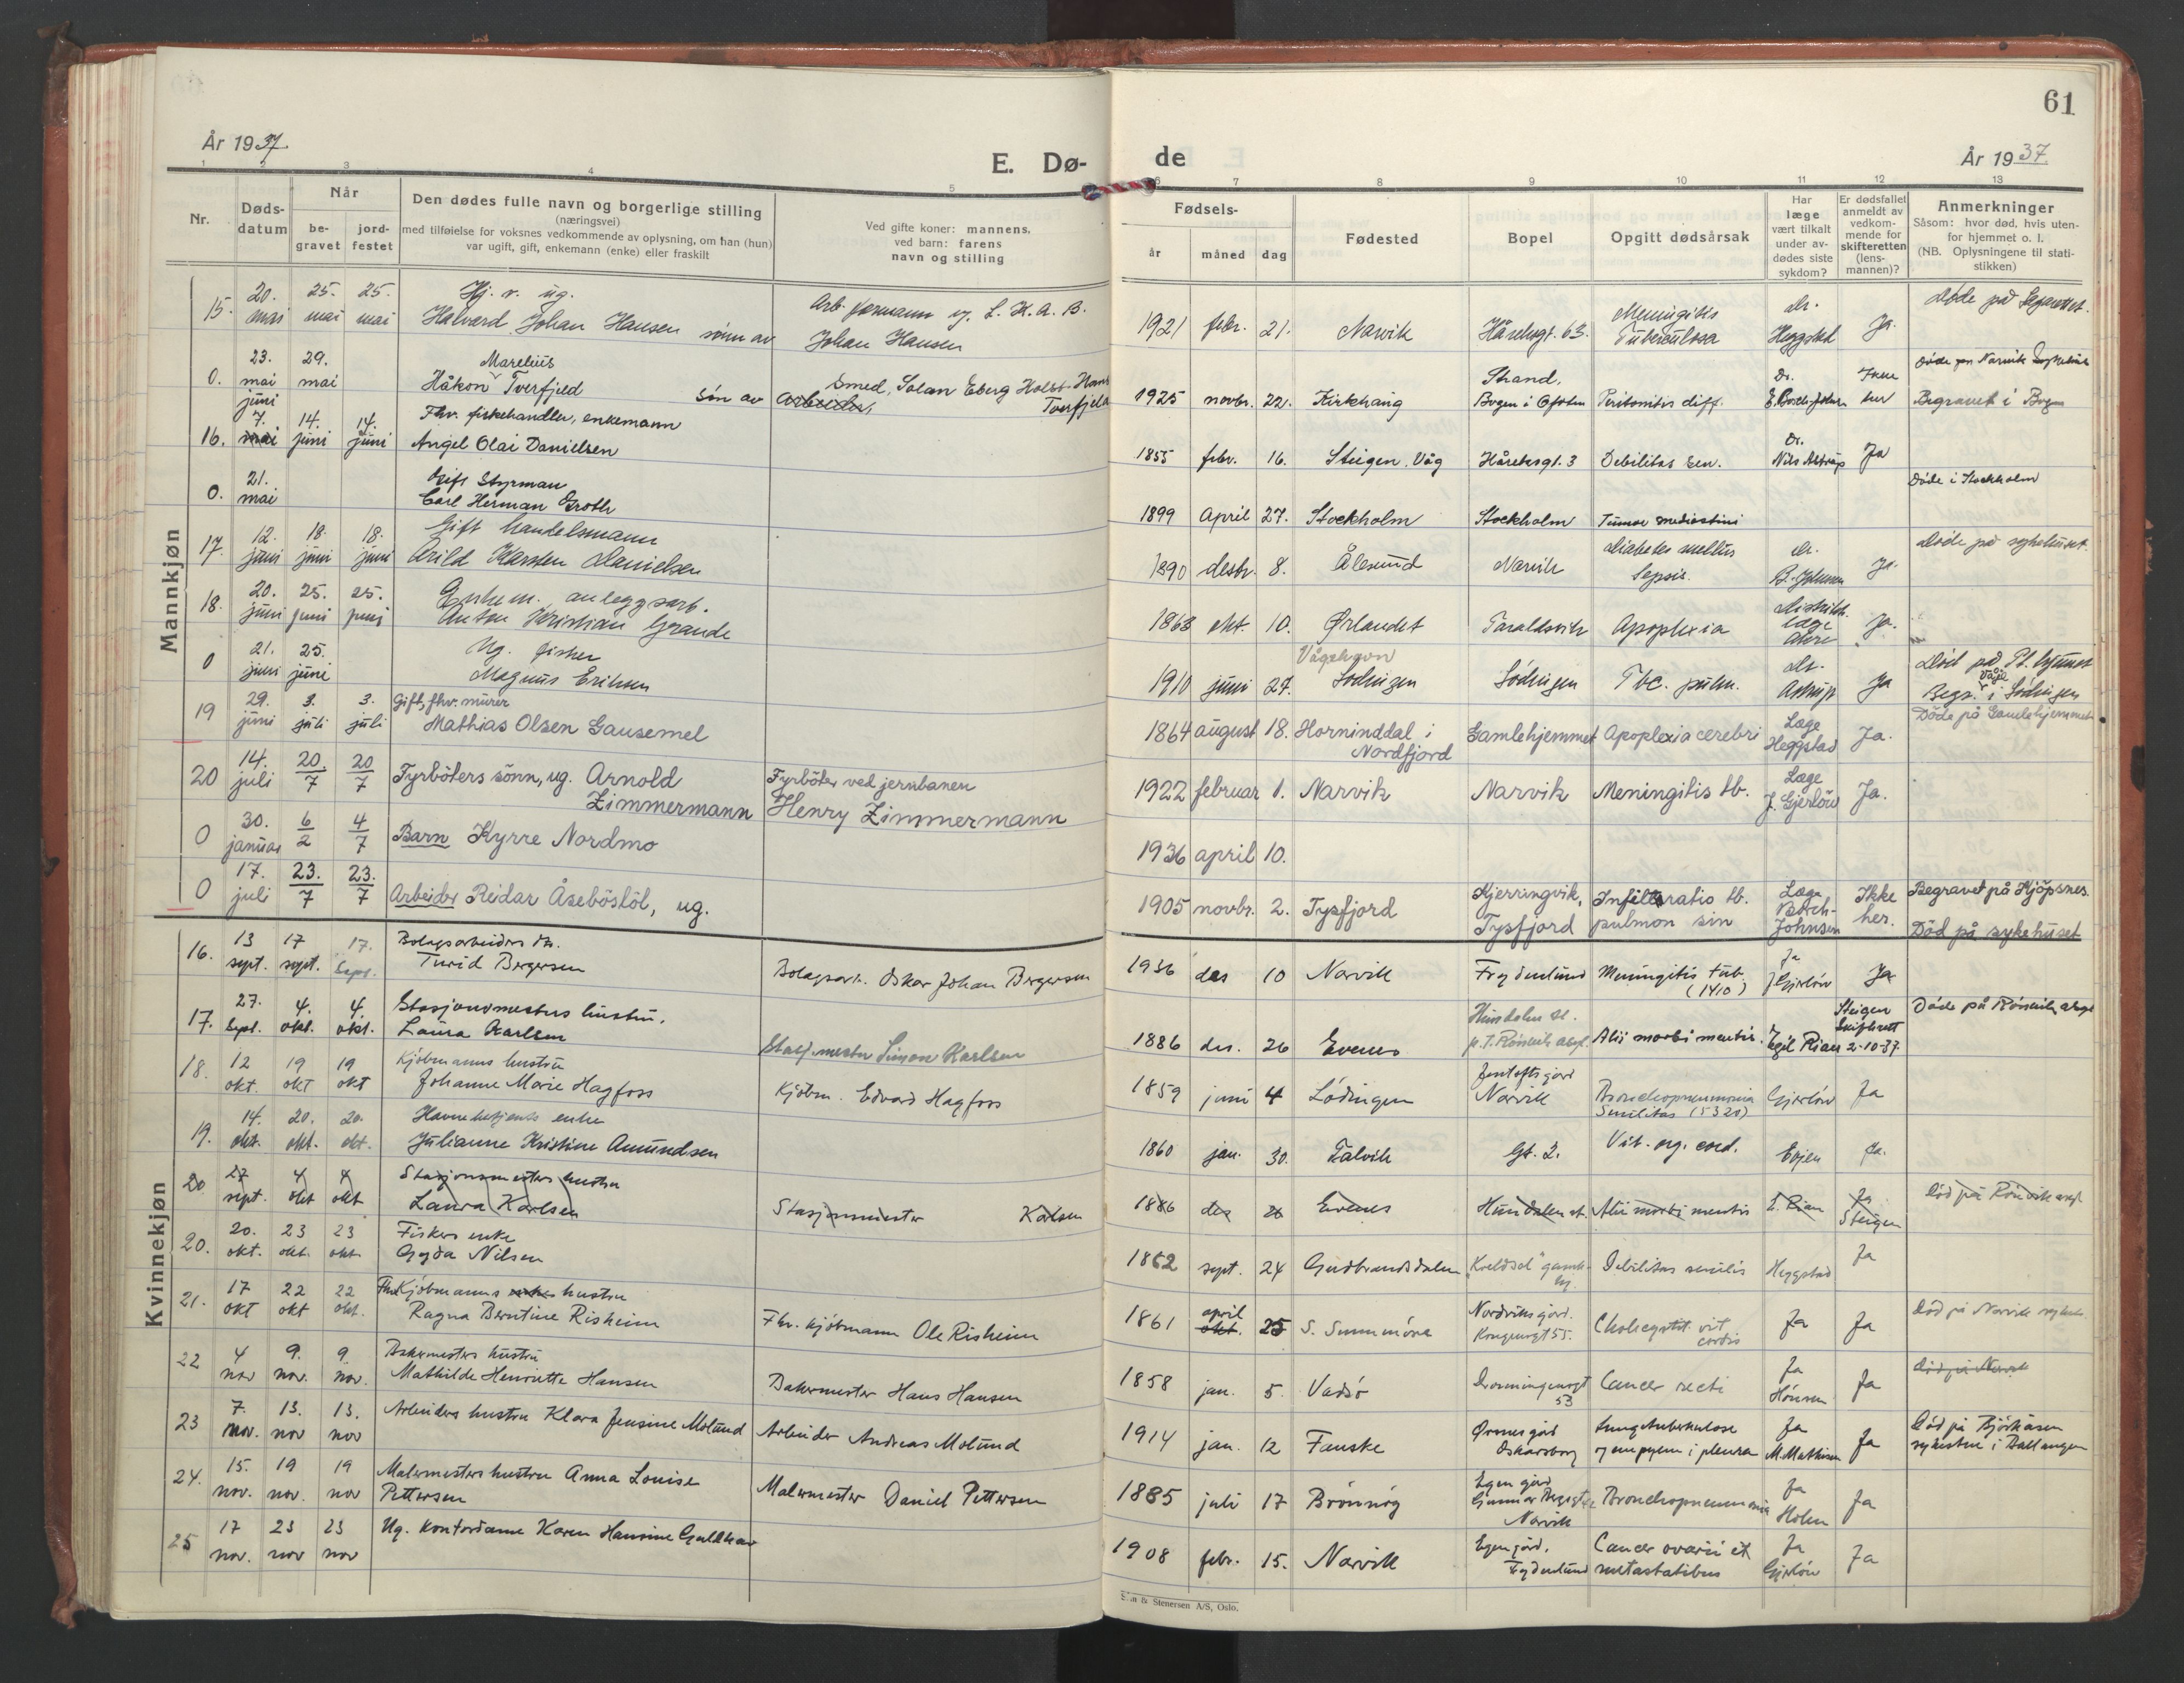 61
År 1937.
E. Dø-
de
År 1937.
1 2 3 4 5 6 7 8 9 10 11 12 13
Nr.
Døds-
datum
Når
be-
gravet
jord-
festet
Den dødes fulle navn og borgerlige stilling
(næringsvei)
med tilføielse for voksnes vedkommende av oplysning, om han (hun)
var ugift, gift, enkemann (enke) eller fraskilt
Ved gifte koner: mannens,
ved barn: farens
navn og stilling
Fødsels-
år måned dag
Fødested
Bopel
Opgitt dødsårsak
Har
læge
vært tilkalt
under av-
dødes siste
sykdom?
Er dødsfallet
anmeldt av
vedkom-
mende for
skifteretten
(lens-
mannen)?
Anmerkninger
Såsom: hvor død, hvis uten-
for hjemmet o. l.
(NB. Oplysningene til stati-
stikken)
Mannkjøn
20. 25. 25. Hj. v. ug. Arb. formann v. L.K.A.B. Meningitis Dr. Døde på
15. mai mai mai Halvard Johan Hansen sønn av Johan Hansen 1921 febr. 21. Narvik 63. Tuberculosa Heggstad Ja.
23. 29. Marelius Smed, Solan Eberg Holst Hans Strand, Dr. Døde Narvik
0. mai mai Håkon Tverfjeld Søn av Arbeider, Tverfjeld 1925 novbr. 22. Kirkhaug Bogen i Ofoten Peritonitis diff. Begravet i Bogen
juni
7. 14. 14. Fhv. fiskehandler, enkemann Dr.
16. mai juni juni Angel Olai Danielsen 1855 febr. 16. Steigen. Våg 3 Debilitas sen. Nils Astrup Ja
21. Gift Styrman Døde i Stockholm
0. mai Carl Herman Groth 1899 April 27. Stockholm Stockholm Tumor mediastini
12. 18. 18. Gift handelsmann Diabetes mellus Dr. Døde på sykehuset.
17. juni juni juni Arild Karsten Danielsen 1890 desbr. 8. Ålesund Narvik Sepsis. B. Johnsen Ja.
20. 25. 25. Enkem. anleggsarb. Distrikts.
18. juni juni juni Anton Kristian Grande 1868 okt. 10. Ørlandet Taraldsvik Apoplexia læge Ja.
21. 25. Ug. fisker Vågehavn Dr. Død på
0 juni juni Magnus Eriksen 1910 juni 27. Lødingen Lødingen Tbc. pulm. Astrup Ja Begr. i Lødingen
29. 3. 3. Gift, fhv. murer Læge Døde på Gamlehjemmet
19 juni juli juli Mathias Olsen Gausemel 1864 august 18. Horninddal i Gamlehjemmet Apoplexia cerebri Heggstad Ja.
Nordfjord
14. 20. 20 Fyrbøters sönn, ug. Arnold Fyrböter ved jernbanen Læge
20 juli 7 7 Zimmermann Henry Zimmermann 1922 februar 1. Narvik Narvik Meningitis tb. J. Gjerlöw Ja.
30. 6 4
0 januar 2 7 Barn Kyrre Nordmo 1936 april 10.
17. 23. 23. Kjerringvik, Infiltratio tb. Læge Ikke Begravet på Kjöpsnes.
0 juli 7 7 Arbeider Reidar Åseböstöl, ug. 1905 novbr. 2. Tysfjord Tysfjord pulmon sin Borch-Johnsen her. Död på sykehuset
Kvinnekjøn
13 17 17. Bolagsarbeiders dt. Ja
16. sept. sept. Sept. Turid Bergersen Bolagsarb. Oskar Johan Bergersen 1936 des 10 Narvik Frydenlund Meningitis tub. (1410) J Gjerløw Ja
27. 4. 4. Stasjonsmesters hustru. Hundalen st. Steigen Skifterett Døde på Rönvik asyl
17. Sept. okt. okt. Laura Karlsen Stasj.mester Simon Karlsen 1886 des. 26 Evenes p.t. Rönvik asyl. Alii morbi mentis. Egil Rian 2-10-37.
12 19 19 Kjöbmanns hustru
18. okt. okt okt Johanne Marie Hagfors Kjöbm. Edvard Hagfors 1859 juni 4 Lödingen Narvik Bronchopneumonia Senilitas (5320) Gjerlöw Ja
14. 20. 20. Havnebetjents enke
19. okt. okt. okt. Julianne Kristine Amundsen 1860 jan. 30. Talvik Gt. 2. Vit. org. cord. Ja.
27 4 4 Stasjonsmesters hustru Ja Död på Rönvik asyl
20 sept. okt okt Laura Karlsen Stasjonmester Karlsen 1886 des 26 Evenes Hundalen st. Alii morbi mentis E. Rian Steigen
20. 23 23 Fiskers enke
20. okt. okt. okt. Gyda Nilsen 1862 sept. 24 Gudbrandsdalen "Kveldsol" gamle-hj. Debilitas senilis Heggstad Ja
17 22 22 Fhv. Kjöbmanns enke hustru april Nordviksgård.
21. okt okt okt. Ragna Berntine Risheim Fhv. kjöbmann Ole Risheim 1861 okt. 25 S. Sunnmöre Kongensgt 55. Cholecystit. vit cordis Ja Ja Död på Narvik sykeh.
4 9. 9. Bakermesters hustru
22 nov nov. nov. Mathilde Henriette Hansen Bakermester Hans Hansen 1858 jan. 5. Vadsö Dronningensgt 53 Cancer recti Ja Ja Död på Narvik
7. 13. 13.
23 nov. nov nov Arbeiders hustru Klara Jensine Molund Arbeider Andreas Molund 1914 jan. 12 Fauske Oskarsborg Lungetuberkulose og empyem i pleura Ja M. Mathisen Ja Död på Bjørkåsen sykestue i Ballangen
15. 19 19 Malermesters hustru Anna Louise
24. nov. nov. nov Pettersen Malermester Daniel Pettersen 1885 juli 17 Brönnöy Egen gård Narvik Bronchopneumonia Ja Holm Ja
17 23 23
25 nov. nov nov Ug. Kontordame Karen Hansine Guldhav 1908 febr. 15. Narvik Egen gård. Frydenlund Cancer ovarii et metastatibus Ja Gjerlöw Ja
& Stenersen A/S, Oslo.